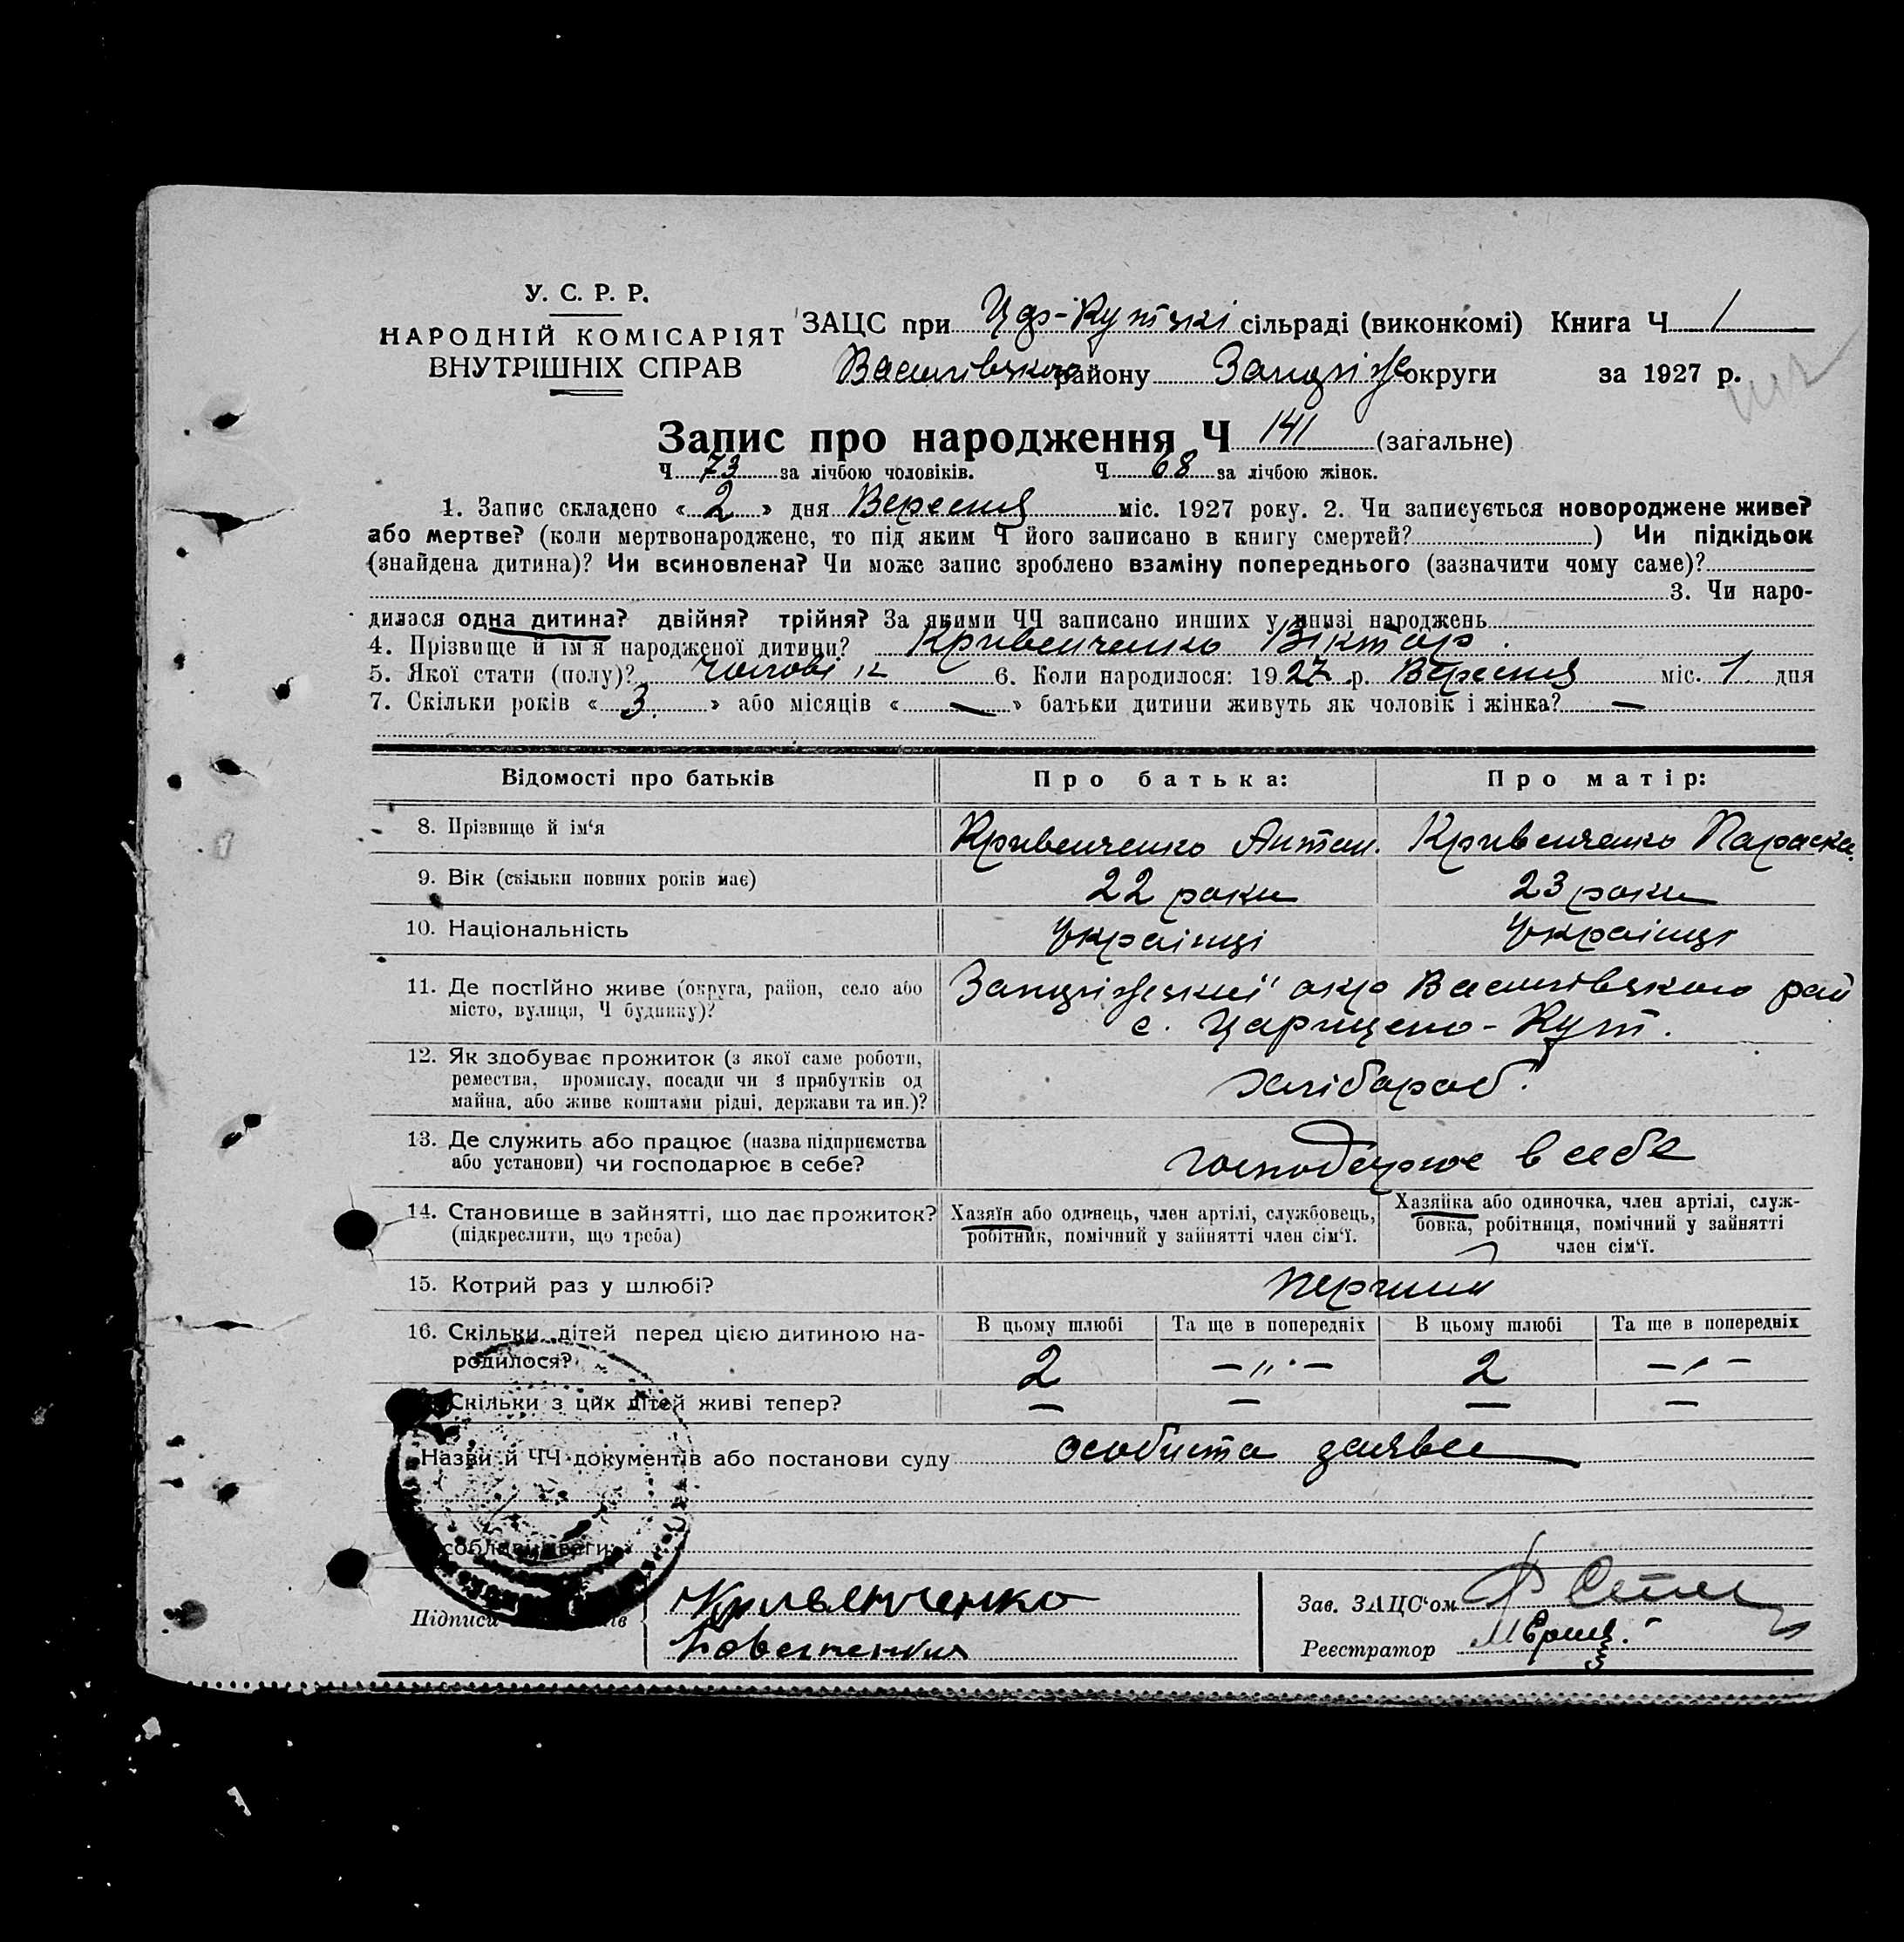 У. С. Р. Р.
НАРОДНІЙ КОМІСАРІЯТ
ВНУТРІШНІХ СПРАВ
ЗАЦС при Цар-Кутські сільраді (виконкомі) Книга Ч 1
Василівського району Запоріж округи за 1927 р.
Запис про народження Ч 141 (загальне)
Ч 73 за лічбою чоловіків. Ч 68 за лічбою жінок.
1. Запис складено « 2 » дня Вересня міс. 1927 року. 2. Чи записується новороджене живе?
або мертве? (коли мертвонароджене, то під яким Ч його записано в книгу смертей? ) Чи підкідьок
(знайдена дитина)? Чи всиновлена? Чи може запис зроблено взаміну попереднього (зазначити чому саме)?
3. Чи наро-
дилася одна дитина? двійня? трійня? За якими ЧЧ записано инших у книзі народжень
4. Прізвище й ім'я народженої дитини? Кривенченко Віктор.
5. Якої стати (полу)? чоловік 6. Коли народилося: 1927 р. Вересня міс. 1 дня
7. Скільки років « 3. » або місяців « — » батьки дитини живуть як чоловік і жінка? —
Відомості про батьків Про батька: Про матір:
8. Прізвище й ім'я Кривенченко Антон. Кривенченко Параска.
9. Вік (скільки повних років має) 22 роки 23 роки
10. Національність Українці Українці
11. Де постійно живе (округа, район, село або
місто, вулиця, Ч будинку)?
Запоріжський окр Василівського рай
с. Царицено-Кут.
12. Як здобуває прожиток (з якої саме роботи,
ремества, промислу, посади чи з прибутків од
майна, або живе коштами рідні, держави та ин.)?
хлібороб.
13. Де служить або працює (назва підприємства
або установи) чи господарює в себе?
господарює в себе
14. Становище в зайнятті, що дає прожиток?
(підкреслити, що треба)
Хазяїн або одинець, член артілі, службовець,
робітник, помічний у зайнятті член сім'ї.
Хазяйка або одиночка, член артілі, служ-
бовка, робітниця, помічний у зайнятті
член сім'ї.
15. Котрий раз у шлюбі? перший
16. Скільки дітей перед цією дитиною на-
родилося?
В цьому шлюбі Та ще в попередніх В цьому шлюбі Та ще в попередніх
2 — " — 2 — " —
Скільки з цих дітей живі тепер? — — — —
Назви й ЧЧ документів або постанови суду особиста заява
Підписи
Кривенченко
Зав. ЗАЦС'ом
Реєстратор